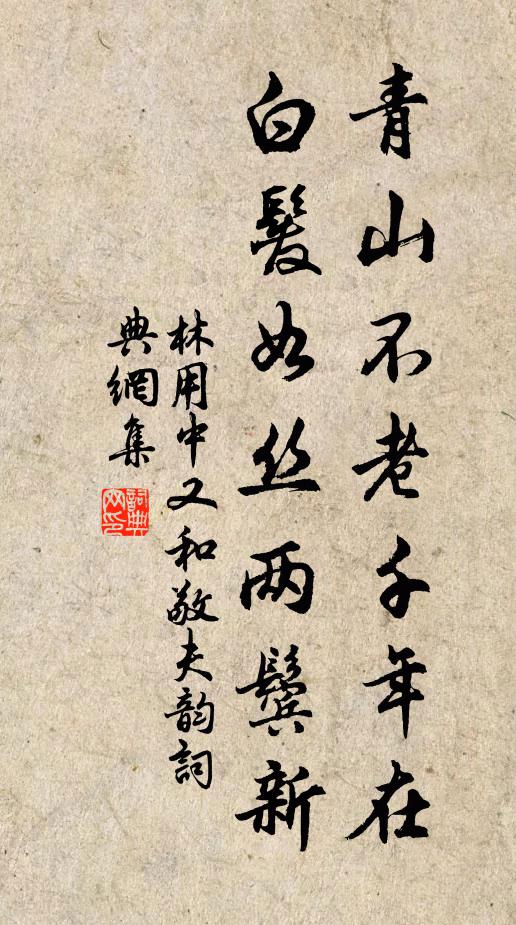 青山不老千年在
白髮如丝两鬢新
林用中又和敬夫韵詞
典網集
詞典网印